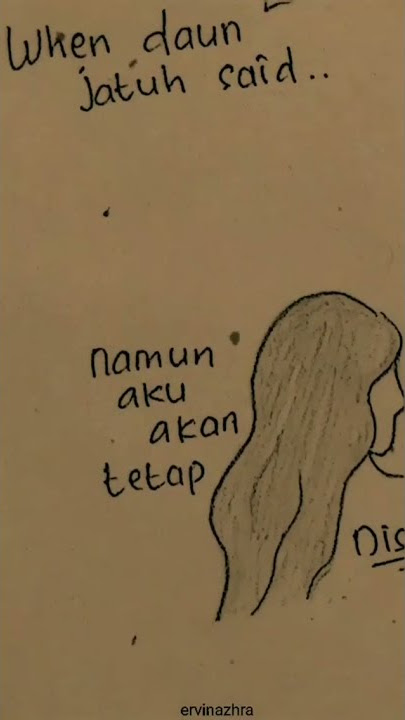 When daun
jatuh said..
namun
aku
akan
tetap
Dis
ervinazhra